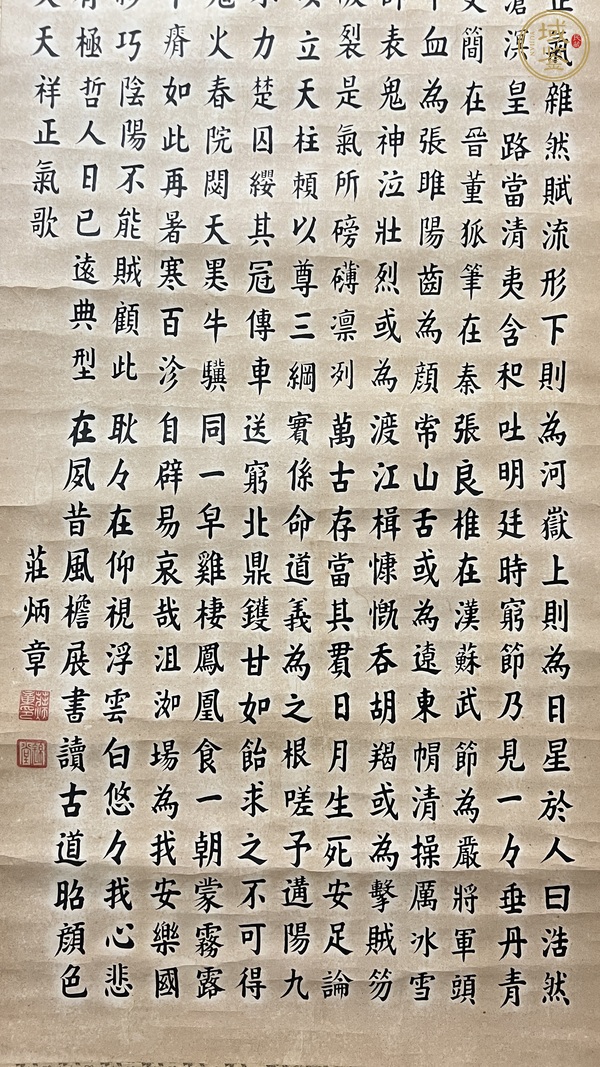 正氣雜然賦流形下則為河嶽上則為日星於人曰浩然
滄溟皇路當清夷含和吐明廷時窮節乃見一々垂丹青
簡在晉董狐筆在秦張良椎在漢蘇武節為嚴將軍頭
中血為張睢陽齒為顏常山舌或為遼東帽清操厲冰雪
師表鬼神泣壯烈或為渡江楫慷慨吞胡羯或為擊賊笏
裂是氣所磅礴凜冽萬古存當其貫日月生死安足論
立天柱賴以尊三綱實係命道義為之根嗟予遘陽九
力楚囚纓其冠傳車送窮北鼎鑊甘如飴求之不可得
鬼火春院閟天黑牛驥同一皁雞棲鳳凰食一朝蒙霧露
瘠如此再暑寒百沴自辟易哀哉沮洳場為我安樂國
巧陰陽不能賊顧此耿々在仰視浮雲白悠々我心悲
有極哲人日已遠典型在夙昔風檐展書讀古道照顏色
天祥正氣歌
莊炳章